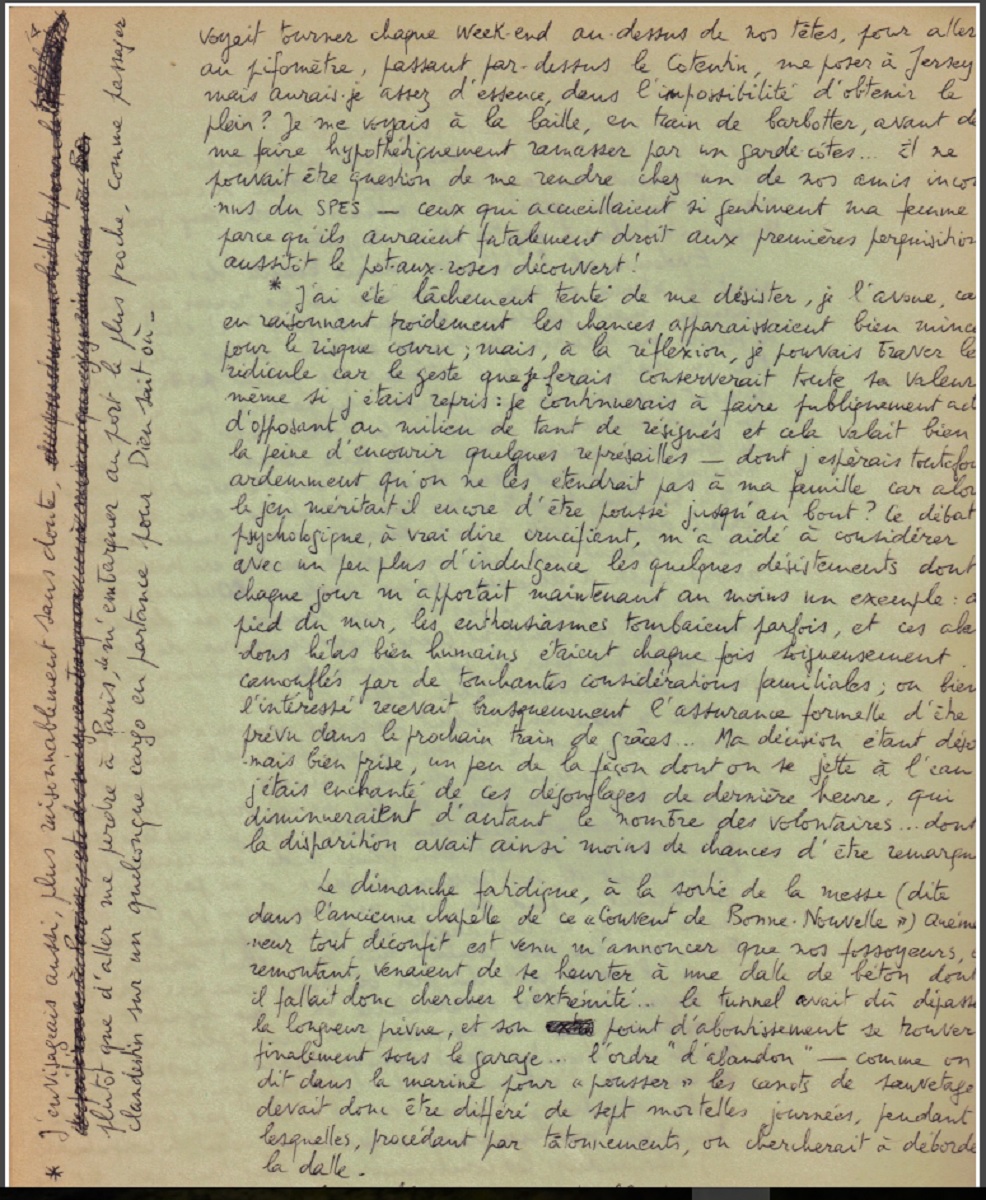 voyait tourner chaque week-end au-dessus de nos têtes, pour aller
au pifomètre, passant par-dessus le Cotentin, me poser à Jersey
mais aurais-je assez d'essence, dans l'impossibilité d'obtenir le
plein? Je me voyais à la baille, en train de barbotter, avant de
me faire hypothétiquement ramasser par un garde-côtes... Il ne
pouvait être question de me rendre chez un de nos amis incon
nus du SPES — ceux qui accueillaient si gentiment ma femme
parce qu'ils auraient fatalement droit aux premières perquisition
aussitôt le pot-aux-roses découvert!
* J'ai été lâchement tenté de me désister, je l'avoue, ca
en raisonnant froidement les chances apparaissaient bien mince
pour le risque couru; mais, à la réflexion, je pouvais braver le
ridicule car le geste que je ferais conserverait toute sa valeur
même si j'étais repris: je continuerais à faire publiquement act
d'opposant au milieu de tant de résignés et cela valait bien
la peine d'encourir quelques représailles — dont j'espérais toutefoi
ardemment qu'on ne les étendrait pas à ma famille car alor
le jeu méritait-il encore d'être poussé jusqu'au bout? Ce débat
psychologique, à vrai dire crucifiant, m'a aidé à considérer
avec un peu plus d'indulgence les quelques désistements dont
chaque jour m'apportait maintenant au moins un exemple: a
pied du mur, les enthousiasmes tombaient parfois, et ces aban
dons hélas bien humains étaient chaque fois soigneusement
camouflés par de touchantes considérations familiales; ou bien
l'intéressé recevait brusquement l'assurance formelle d'être
prévu dans le prochain train de grâces... Ma décision étant déso
mais bien prise, un peu de la façon dont on se jette à l'eau
j'étais enchanté de ces dégonflages de dernière heure, qui
diminueraient d'autant le nombre des volontaires... dont
la disparition avait ainsi moins de chances d'être remarqu
Le dimanche fatidique, à la sortie de la messe (dite
dans l'ancienne chapelle de ce «Couvent de Bonne-Nouvelle»)
neur tout déconfit est venu m'annoncer que nos fossoyeurs, e
remontant, venaient de se heurter à une dalle de béton dont
il fallait donc chercher l'extrémité... le tunnel avait dû dépass
la longueur prévue, et son point d'aboutissement se trouver
finalement sous le garage... l'ordre "d'abandon" — comme on
dit dans la marine pour «pousser» les canots de sauvetage
devait donc être différé de sept mortelles journées, pendant
lesquelles, procédant par tâtonnements, on chercherait à déborde
la dalle.
* J'envisageais aussi, plus raisonnablement sans doute,
plutôt que d'aller me perdre à Paris, de m'embarquer au port le plus proche, comme passager
clandestin sur un quelconque cargo en partance pour Dieu sait où-